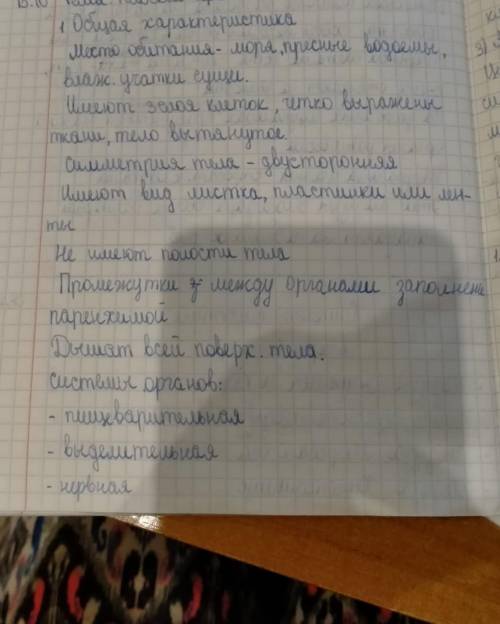 1 Общая характеристика
Место обитания - моря, пресные водоемы,
влаж. учатки суши.
Имеют 3слоя клеток, четко выражены
ткани, тело вытянутое.
Симметрия тела - двусторонняя
Имеют вид листка, пластинки или лен-
ты
Не имеют полости тела
Промежутки между органами заполнена
паренхимой
Дышат всей поверх. тела.
системы органов:
- пищеварительная
- выделительная
- нервная
3)